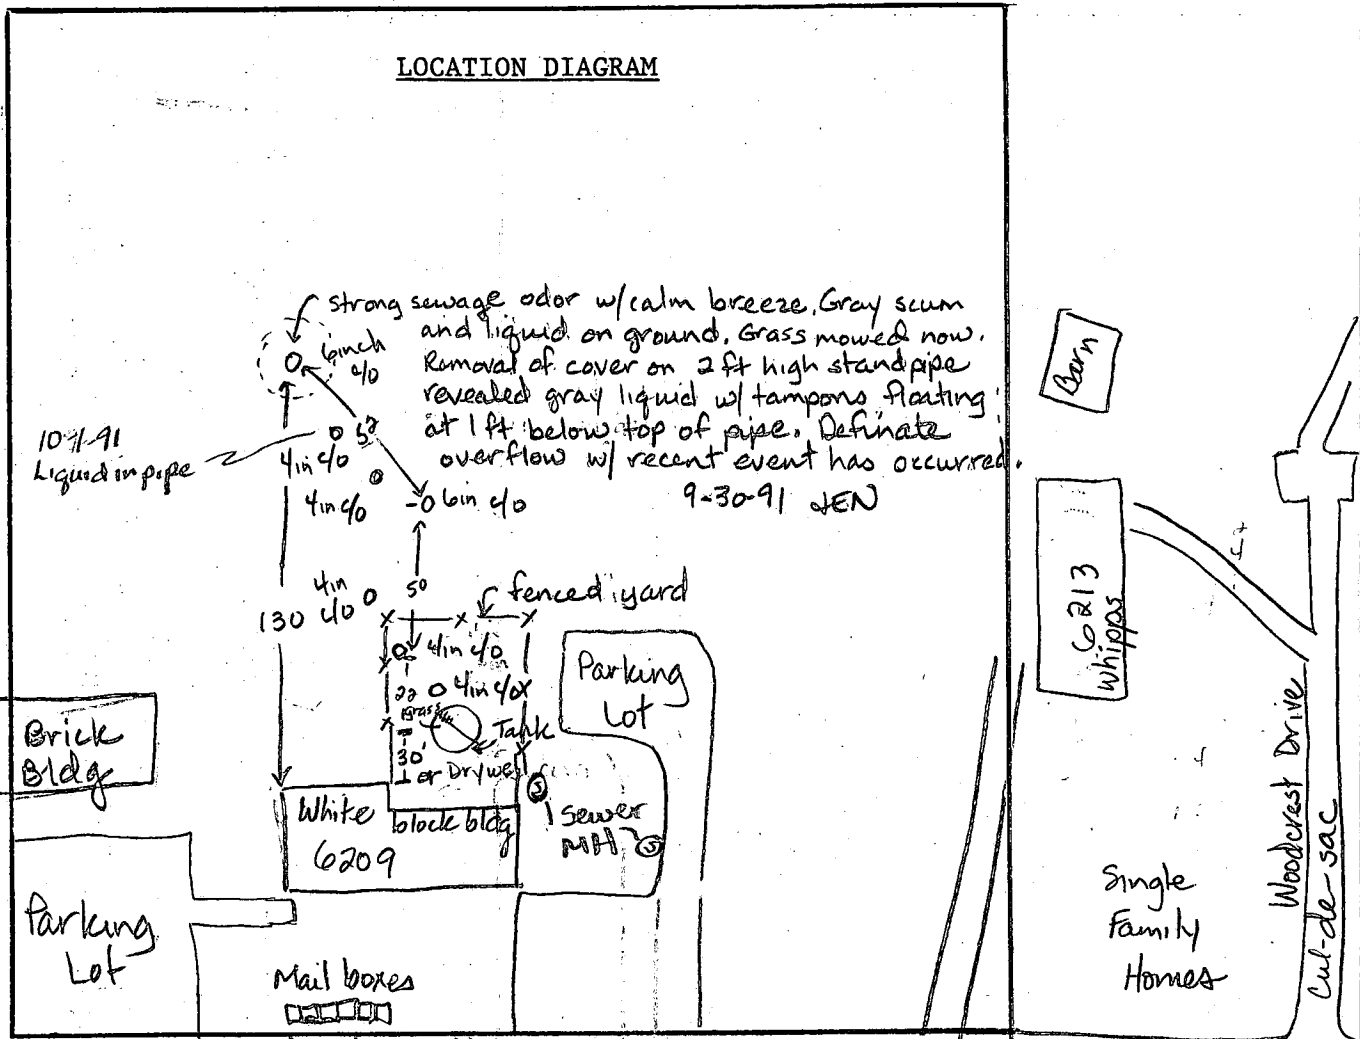 LOCATION DIAGRAM
strong sewage odor w/calm breeze. Gray scum
and liquid on ground. Grass mowed now.
Removal of cover on 2 ft high standpipe
revealed gray liquid w/ tampons floating
at 1 ft below top of pipe. Definate
overflow w/ recent event has occurred.
9-30-91 JEN
6inch
c/o
10-1-91
Liquid in pipe
52
4in c/o
4in c/o
6in c/o
4in
c/o
50
130
fenced yard
4in c/o
22
4in c/o
Grass
Tank
30'
or Drywell
Parking
Lot
Brick
Bldg
White block bldg
6209
S
Sewer
MH
S
Parking
Lot
Mail boxes
Barn
6213
Whipps
Single
Family
Homes
Woodcrest Drive
Cul-de-sac